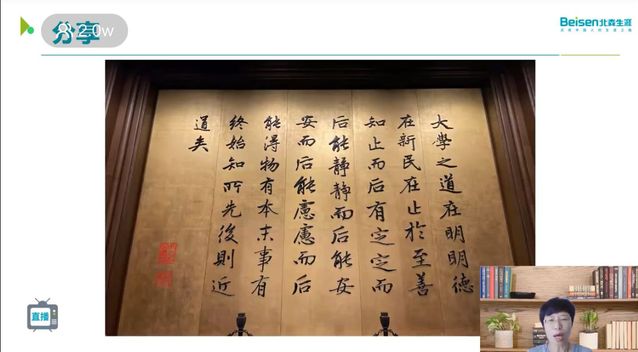 分享
2.0w
Beisen北森生涯
大學之道在明明德
在新民在止於至善
知止而后有定定而
后能静静而后能安
安而后能慮慮而后
能得物有本末事有
終始知所先後則近
道矣
直播